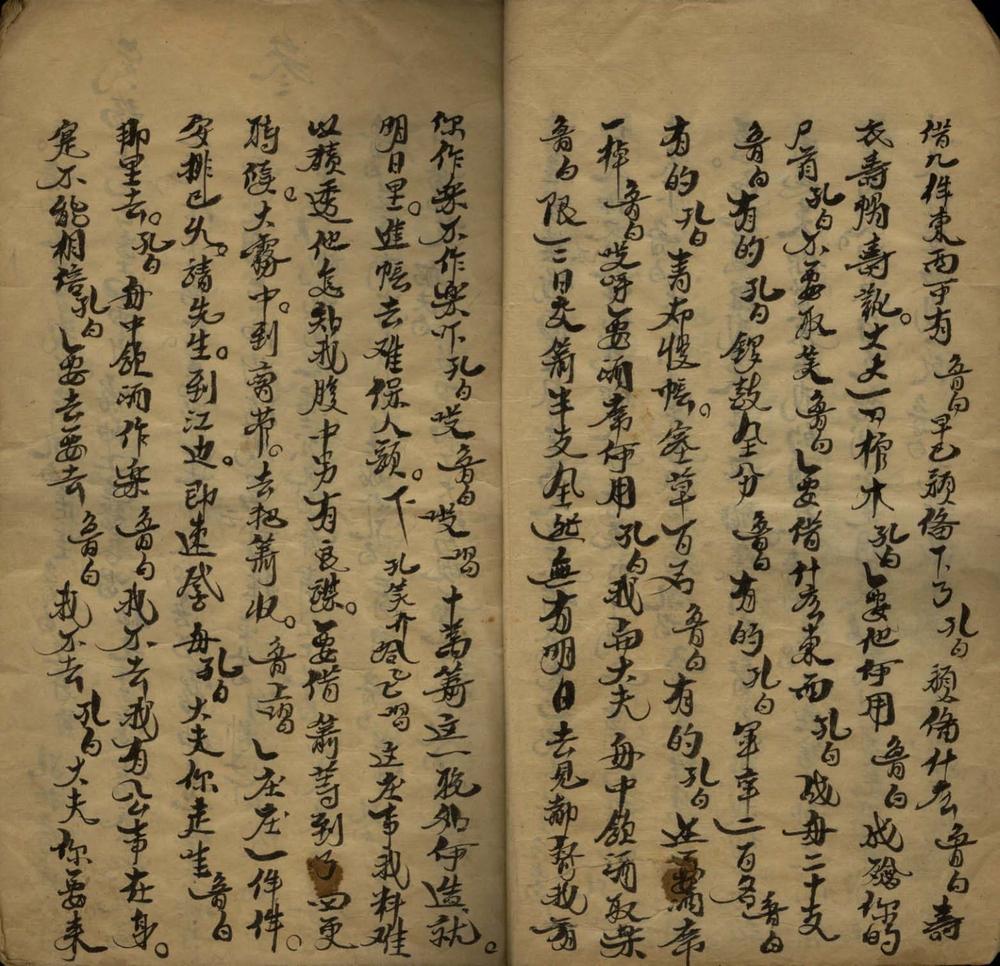 借几件東西可有 魯白 早已预俻下了 孔白 预俻什么 魯白 壽
衣壽帽壽靴丈丈一口棺木 孔白 要他何用 魯白 成殮你的
尸首 孔白 不要取笑 魯白 要借什么東西 孔白 战舟二十支
魯白 有的 孔白 鑼鼓全分 魯白 有的 孔白 军卒一百名 魯白
有的 孔白 青布幔帐。塞草百石 魯白 有的 孔白 还要酒席
一棹 魯白 哎呀要酒席何用 孔白 我而大夫舟中飲酒取樂
魯白 限三日交箭半支全然無有明日去见都督我
你作樂不作樂吓 孔白 哎 魯白 哎 唱 十萬箭这一晚如何造就。
明日里。進帳去难保人頭。下 孔笑介 唱 这庄事我料难
以瞒透他怎知我腹中另有良謀。要借箭等到了四更
時候。大霧中。到曹营。去把箭收。魯上唱 庄庄一件件。
安排已久。請先生。到江边。即速登舟 孔白 大夫你走哇 魯白
那里去。孔白 舟中飲酒作樂 魯白 我不去我有公事在身。
寔不能相培 孔白 要去要去 魯白 我不去 孔白 大夫你要来